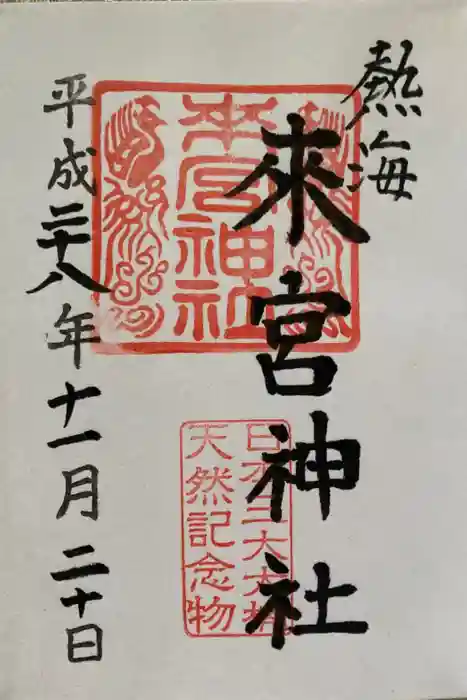 熱海
來宮神社
平成二十八年十一月二十日
来宮神社
日本二大大楠
天然記念物